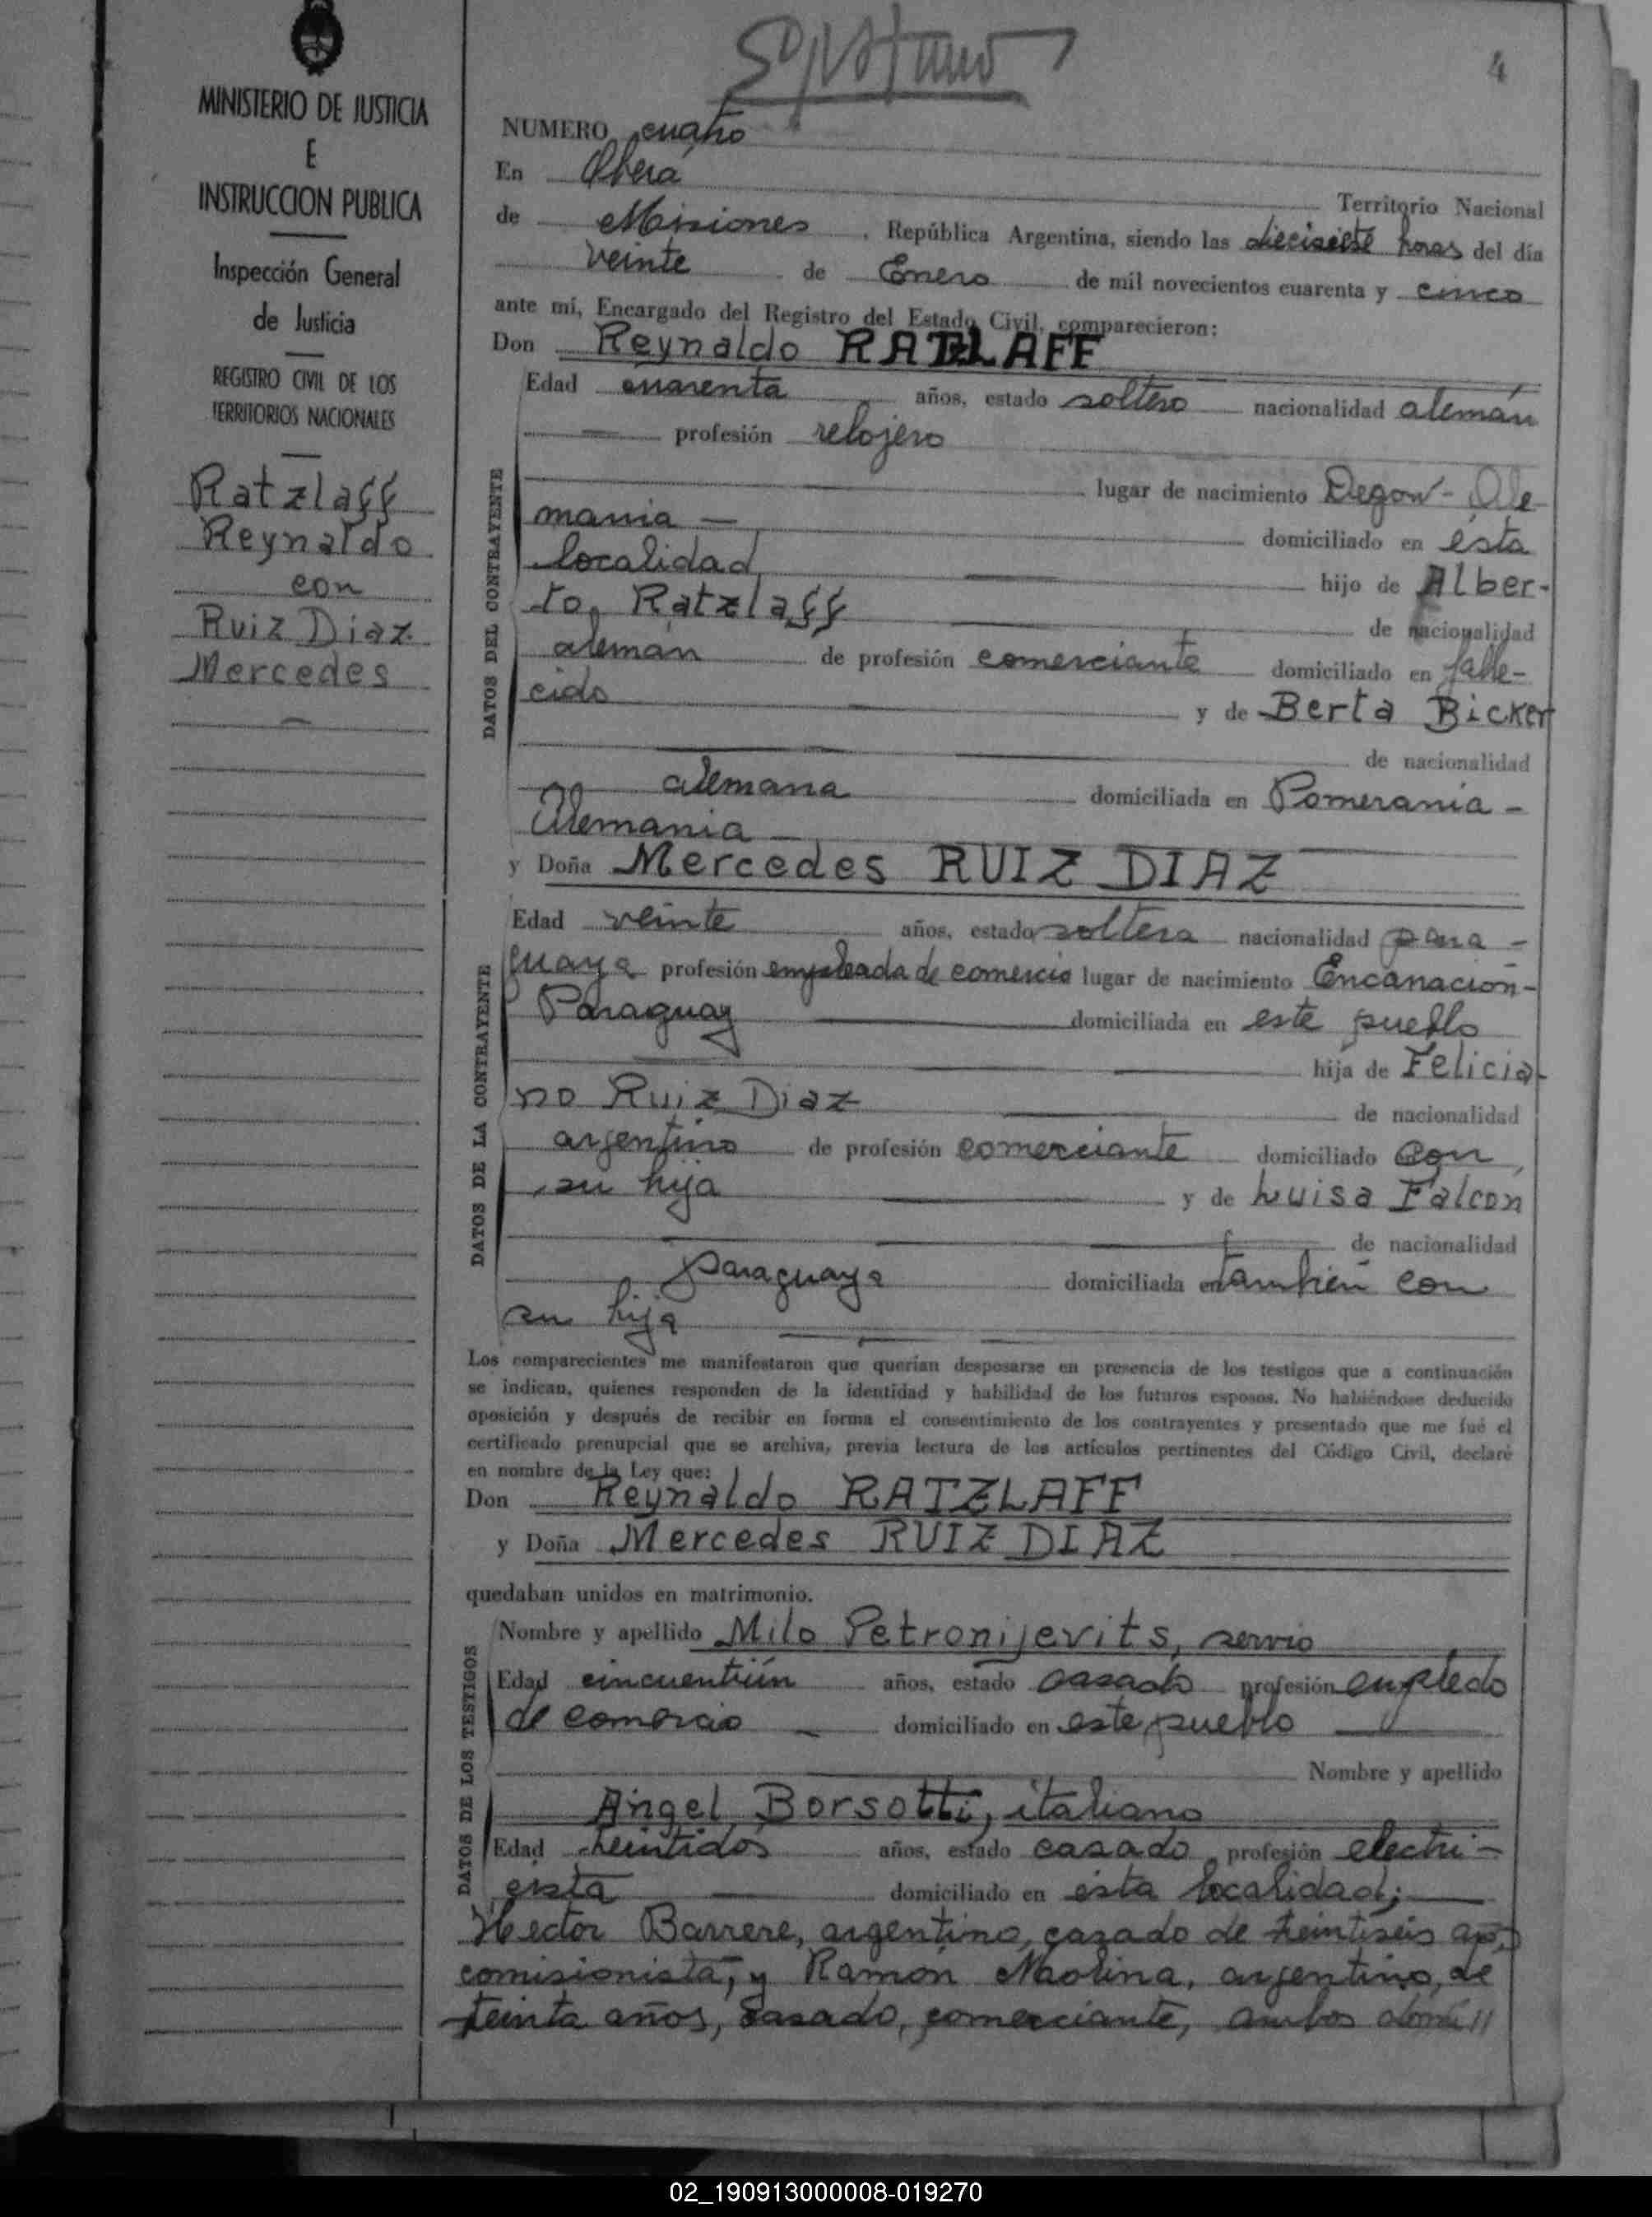 4
MINISTERIO DE JUSTICIA
E
INSTRUCCION PUBLICA
Inspección General
de Justicia
REGISTRO CIVIL DE LOS
TERRITORIOS NACIONALES
Ratzlaff
Reynaldo
con
Ruiz Diaz
Mercedes
NUMERO cuatro
En Oberá
Territorio Nacional
de Misiones, República Argentina, siendo las diecisiete horas del día
veinte de Enero de mil novecientos cuarenta y cinco
ante mí, Encargado del Registro del Estado Civil, comparecieron:
Don Reynaldo RATZLAFF
DATOS DEL CONTRAYENTE
Edad cuarenta años, estado soltero nacionalidad alemán
profesión relojero
lugar de nacimiento Degow - Ale
mania — domiciliado en ésta
localidad hijo de Alber-
to Ratzlaff de nacionalidad
alemán de profesión comerciante domiciliado en falle-
cido y de Berta Bicker
de nacionalidad
alemana domiciliada en Pomerania -
Alemania —
y Doña Mercedes RUIZ DIAZ
DATOS DE LA CONTRAYENTE
Edad veinte años, estado soltera nacionalidad para -
guaya profesión empleada de comercio lugar de nacimiento Encanación -
Paraguay domiciliada en este pueblo
hija de Felicia-
no Ruiz Diaz de nacionalidad
argentino de profesión comerciante domiciliado con
su hija y de Luisa Falcón
de nacionalidad
paraguaya domiciliada en también con
su hija
Los comparecientes me manifestaron que querían desposarse en presencia de los testigos que a continuación
se indican, quienes responden de la identidad y habilidad de los futuros esposos. No habiéndose deducido
oposición y después de recibir en forma el consentimiento de los contrayentes y presentado que me fué el
certificado prenupcial que se archiva, previa lectura de los artículos pertinentes del Código Civil, declaré
en nombre de la Ley que:
Don Reynaldo RATZLAFF
y Doña Mercedes RUIZ DIAZ
quedaban unidos en matrimonio.
DATOS DE LOS TESTIGOS
Nombre y apellido Milo Petronijevits, servio
Edad cincuentiún años, estado casado profesión empledo
de comercio — domiciliado en este pueblo
Nombre y apellido
Angel Borsotti, italiano
Edad treintidos años, estado casado, profesión electri-
cista domiciliado en esta localidad;
Hector Barrere, argentino, casado de treintiseis
comisionista, y Ramón Maolina, argentino, de
treinta años, casado, comerciante, ambos domi//
02_190913000008-019270